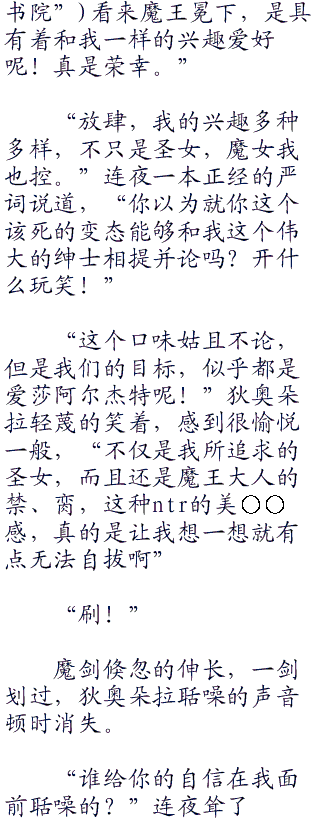 书院”) 看来魔王冕下，是具
有着和我一样的兴趣爱好
呢！真是荣幸。”
“放肆，我的兴趣多种
多样，不只是圣女，魔女我
也控。”连夜一本正经的严
词说道，“你以为就你这个
该死的变态能够和我这个伟
大的绅士相提并论吗？开什
么玩笑！”
“这个口味姑且不论，
但是我们的目标，似乎都是
爱莎阿尔杰特呢！”狄奥朵
拉轻蔑的笑着，感到很愉悦
一般，“不仅是我所追求的
圣女，而且还是魔王大人的
禁、脔，这种ntr的美○○
感，真的是让我想一想就有
点无法自拔啊”
“刷！”
魔剑倏忽的伸长，一剑
划过，狄奥朵拉聒噪的声音
顿时消失。
“谁给你的自信在我面
前聒噪的？”连夜耸了